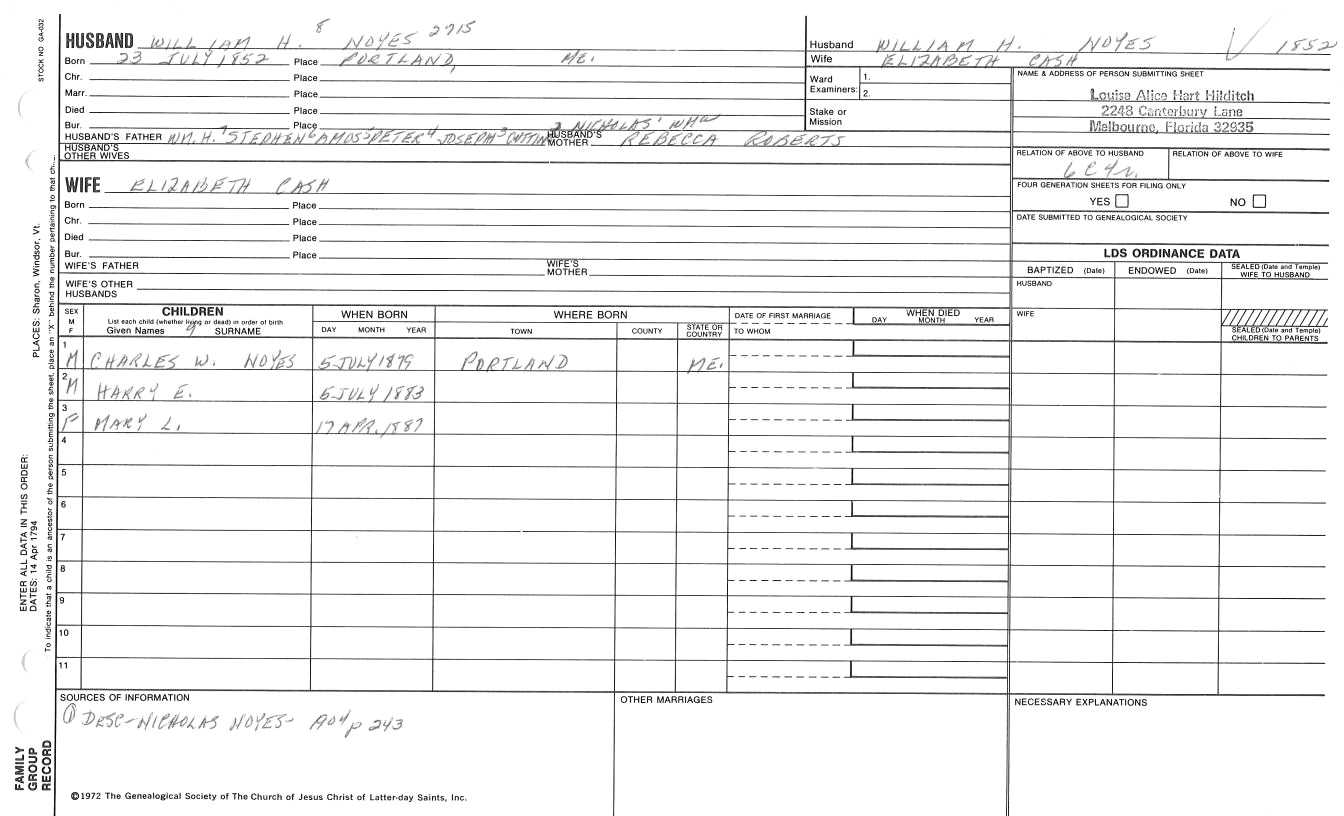 STOCK NO. GA-032
HUSBAND WILLIAM H. 8 NOYES 2715
Born 23 JULY 1852 Place PORTLAND, ME.
Chr. Place
Marr. Place
Died Place
Bur. Place
HUSBAND'S FATHER WM. H. 7 STEPHEN 6 AMOS 5 PETER 4 JOSEPH 3 CUTTING 2 NICHOLAS 1 WMa HUSBAND'S MOTHER REBECCA ROBERTS
HUSBAND'S OTHER WIVES
WIFE ELIZABETH CASH
Born Place
Chr. Place
Died Place
Bur. Place
WIFE'S FATHER WIFE'S MOTHER
WIFE'S OTHER HUSBANDS
Husband WILLIAM H. NOYES 1852
Wife ELIZABETH CASH
Ward Examiners: 1. 2.
Stake or Mission
NAME & ADDRESS OF PERSON SUBMITTING SHEET
Louise Alice Hart Hilditch
2248 Canterbury Lane
Melbourne, Florida 32935
RELATION OF ABOVE TO HUSBAND RELATION OF ABOVE TO WIFE
6C4r.
FOUR GENERATION SHEETS FOR FILING ONLY
YES NO
DATE SUBMITTED TO GENEALOGICAL SOCIETY
LDS ORDINANCE DATA
BAPTIZED (Date) ENDOWED (Date) SEALED (Date and Temple) WIFE TO HUSBAND
HUSBAND
WIFE
SEALED (Date and Temple) CHILDREN TO PARENTS
SEX M F
CHILDREN
List each child (whether living or dead) in order of birth
Given Names 9 SURNAME
WHEN BORN
DAY MONTH YEAR
WHERE BORN
TOWN COUNTY STATE OR COUNTRY
DATE OF FIRST MARRIAGE
TO WHOM
WHEN DIED
DAY MONTH YEAR
1 M CHARLES W. NOYES 5 JULY 1879 PORTLAND ME.
2 M HARRY E. 6 JULY 1883
3 F MARY L. 17 APR. 1887
4
5
6
7
8
9
10
11
SOURCES OF INFORMATION
① DESC-NICHOLAS NOYES- p 243
OTHER MARRIAGES
NECESSARY EXPLANATIONS
©1972 The Genealogical Society of The Church of Jesus Christ of Latter-day Saints, Inc.
FAMILY GROUP RECORD
ENTER ALL DATA IN THIS ORDER:
DATES: 14 Apr 1794
PLACES: Sharon, Windsor, Vt.
To indicate that a child is an ancestor of the person submitting the sheet, place an "X" behind the number pertaining to that ch...